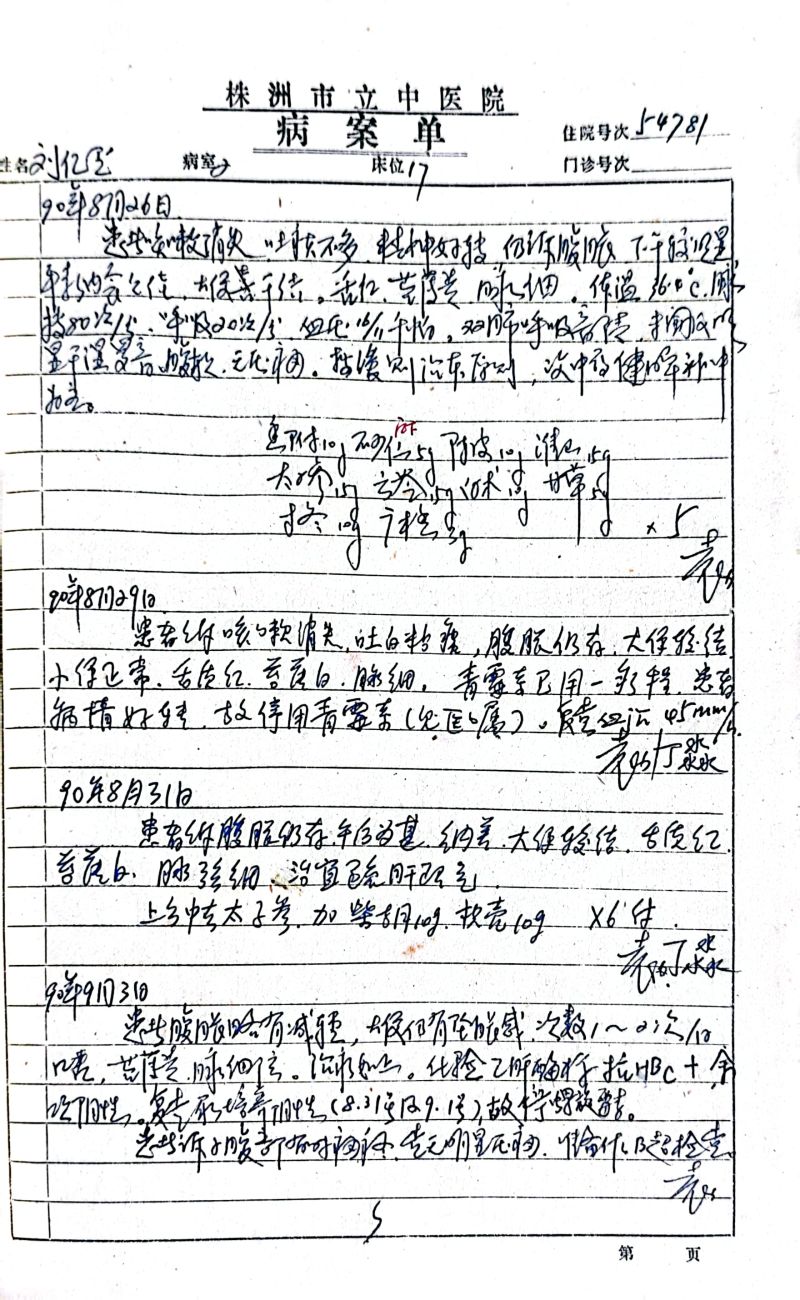 株洲市立中医院
病案单
住院号次 54781
姓名 刘亿 病室 床位 17 门诊号次
90年8月26日
患者咳嗽消失，吐痰不多，精神好转，仍诉腹胀，下午较明显
纳食欠佳，大便素干结。舌红，苔薄黄，脉细。体温36.0℃，脉
搏80次/分，呼吸20次/分，血压16/11千帕，双肺呼吸音清，未闻及明
显干湿罗音，腹软，无压痛。
为主。
香附10g 砂仁5g 陈皮10g 淮山15g
太子参15g 云苓15g 白术10g 甘草5g
寸冬10g 广木香3g ×5
袁
90年8月29日
患者诉咳嗽消失，吐白粘痰，腹胀仍存，大便较结，
小便正常，舌质红，苔薄白，脉细。青霉素已用一疗程，患者
病情好转，故停用青霉素（见医嘱）。复查血沉45mm/h。
袁
90年8月31日
患者诉腹胀仍存，午后为甚，纳差，大便较结，舌质红，
苔薄白，脉弦细，治宜疏肝理气
上方中去太子参，加柴胡10g，枳壳10g ×6付.
袁
90年9月3日
患者腹胀略有减轻，大便仍有坠胀感，次数1～2次/日
苔薄黄，脉细弦。治疗如上。化验乙肝 抗HBc+，余
均阴性。复查尿培养阴性（8.31号及9.1号）故停
患者诉 腹部有时 痛，查无明显压痛，B超检查。
袁
5
第 页